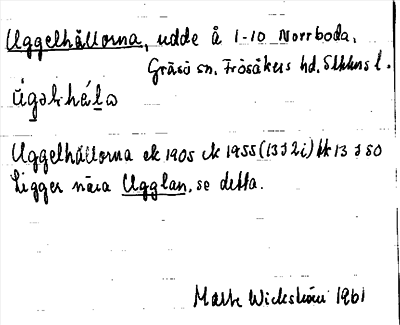 Uggelhällorna, udde å 1-10 Norrboda,
Gräsö sn. Frösåkers hd. Sthlms l.
Uggelhällorna ek 1905 ek 1955 (13J2i) bk 13 J 50
Ligger nära Ugglan, se detta.
Wickström 1961